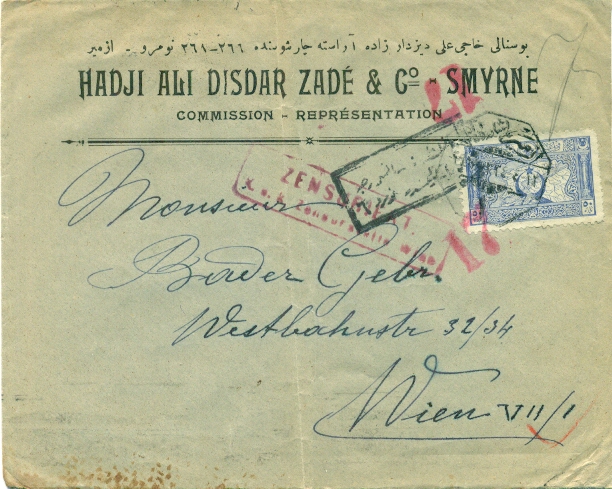 بوسنالی حاجی علی دیزدار زاده آراسته چارشوسنده ٢٦٦-٢٦١ نومرو - ازمیر
HADJI ALI DISDAR ZADÉ & Cº - SMYRNE
COMMISSION - REPRÉSENTATION
ZENSURIERT.
K.u.k. Zensurstelle Wien
17
17
Monsieur
Bader Gebr.
Westbahnstr 32/34
Wien VII/1